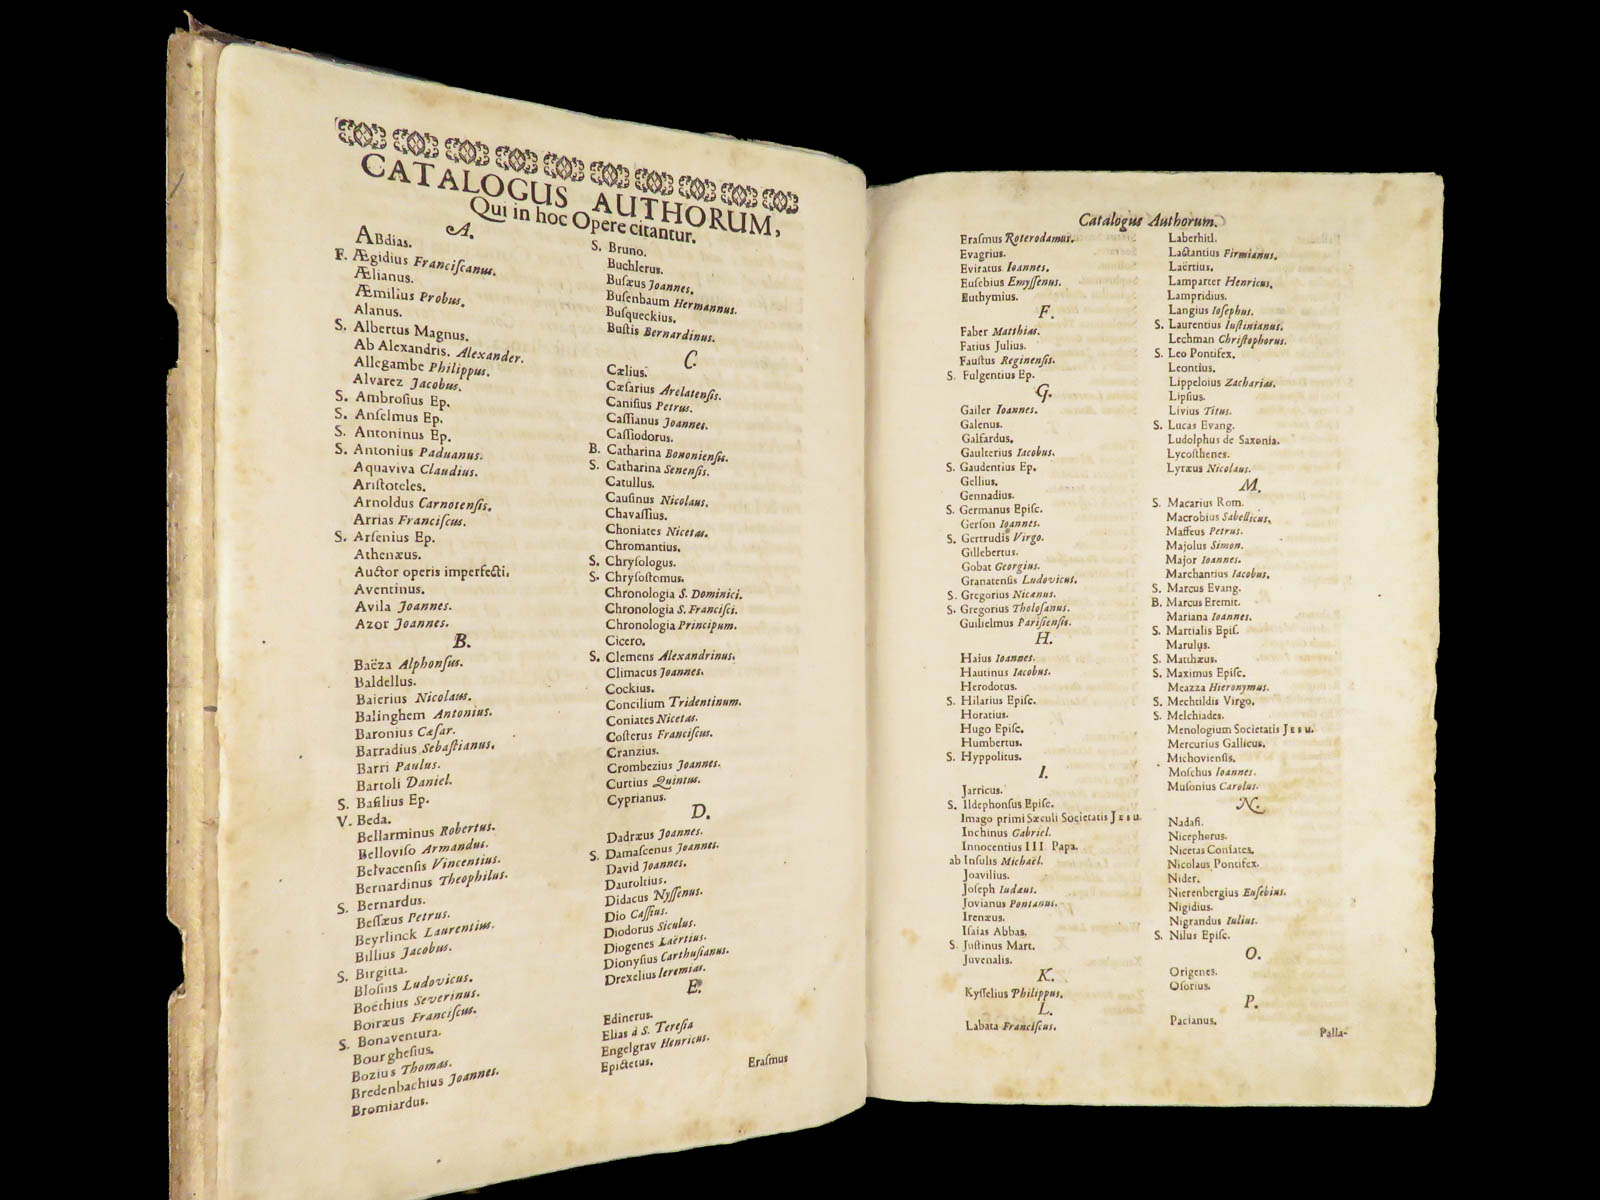 CATALOGUS AUTHORUM,
Qui in hoc Opere citantur.
A.
ABdias.
F. Ægidius Franciſcanus.
Ælianus.
Æmilius Probus.
Alanus.
S. Albertus Magnus.
Ab Alexandris. Alexander.
Allegambe Philippus.
Alvarez Jacobus.
S. Ambroſius Ep.
S. Anſelmus Ep.
S. Antoninus Ep.
S. Antonius Paduanus.
Aquaviva Claudius.
Ariſtoteles.
Arnoldus Carnotenſis.
Arrias Franciſcus.
S. Arſenius Ep.
Athenæus.
Auctor operis imperfecti.
Aventinus.
Avila Joannes.
Azor Joannes.
B.
Baëza Alphonſus.
Baldellus.
Baierius Nicolaus.
Balinghem Antonius.
Baronius Cæſar.
Barradius Sebaſtianus.
Barri Paulus.
Bartoli Daniel.
S. Baſilius Ep.
V. Beda.
Bellarminus Robertus.
Belloviſo Armandus.
Belvacenſis Vincentius.
Bernardinus Theophilus.
S. Bernardus.
Beſſæus Petrus.
Beyrlinck Laurentius.
Billius Jacobus.
S. Birgitta.
Bloſius Ludovicus.
Boëthius Severinus.
Boiræus Franciſcus.
S. Bonaventura.
Bourgheſius.
Bozius Thomas.
Bredenbachius Joannes.
Bromiardus.
S. Bruno.
Buchlerus.
Buſæus Joannes.
Buſenbaum Hermannus.
Buſqueckius.
Buſtis Bernardinus.
C.
Cælius.
Cæſarius Arelatenſis.
Caniſius Petrus.
Caſſianus Joannes.
Caſſiodorus.
B. Catharina Bononienſis.
S. Catharina Senenſis.
Catullus.
Cauſinus Nicolaus.
Chavaſſius.
Choniates Nicetas.
Chromantius.
S. Chryſologus.
S. Chryſoſtomus.
Chronologia S. Dominici.
Chronologia S. Franciſci.
Chronologia Principum.
Cicero.
S. Clemens Alexandrinus.
Climacus Joannes.
Cockius.
Concilium Tridentinum.
Coniates Nicetas.
Coſterus Franciſcus.
Cranzius.
Crombezius Joannes.
Curtius Quintus.
Cyprianus.
D.
Dadræus Joannes.
S. Damaſcenus Joannes.
David Joannes.
Dauroltius.
Didacus Nyſſenus.
Dio Caſſius.
Diodorus Siculus.
Diogenes Laërtius.
Dionyſius Carthuſianus.
Drexelius Ieremias.
E.
Edinerus.
Elias à S. Tereſia
Engelgrav Henricus.
Epictetus.
Eraſmus
Catalogus Authorum.
Eraſmus Roterodamus.
Evagrius.
Eviratus Ioannes.
Euſebius Emyſſenus.
Euthymius.
F.
Faber Matthias.
Fatius Julius.
Fauſtus Reginenſis.
S. Fulgentius Ep.
G.
Gailer Ioannes.
Galenus.
Galfardus.
Gaulterius Iacobus.
S. Gaudentius Ep.
Gellius.
Gennadius.
S. Germanus Epiſc.
Gerſon Ioannes.
S. Gertrudis Virgo.
Gillebertus.
Gobat Georgius.
Granatenſis Ludovicus.
S. Gregorius Nicænus.
S. Gregorius Tholoſanus.
Guilielmus Pariſienſis.
H.
Haius Ioannes.
Hautinus Iacobus.
Herodotus.
S. Hilarius Epiſc.
Horatius.
Hugo Epiſc.
Humbertus.
S. Hyppolitus.
I.
Jarricus.
S. Ildephonſus Epiſc.
Imago primi Sæculi Societatis JESU.
Inchinus Gabriel.
Innocentius III. Papa.
ab Inſulis Michaël.
Joavilius.
Joſeph Iudæus.
Jovianus Pontanus.
Irenæus.
Iſaias Abbas.
S. Juſtinus Mart.
Juvenalis.
K.
Kyſſelius Philippus.
L.
Labata Franciſcus.
Laberhitl.
Lactantius Firmianus.
Laërtius.
Lamparter Henricus.
Lampridius.
Langius Ioſephus.
S. Laurentius Iuſtinianus.
Lechman Chriſtophorus.
S. Leo Pontifex.
Leontius.
Lippeloius Zacharias.
Lipſius.
Livius Titus.
S. Lucas Evang.
Ludolphus de Saxonia.
Lycoſthenes.
Lyræus Nicolaus.
M.
S. Macarius Rom.
Macrobius Sabellicus.
Maffeus Petrus.
Majolus Simon.
Major Ioannes.
Marchantius Iacobus.
S. Marcus Evang.
B. Marcus Eremit.
Mariana Ioannes.
S. Martialis Epiſ.
Marulus.
S. Matthæus.
S. Maximus Epiſc.
Meazza Hieronymus.
S. Mechtildis Virgo.
S. Melchiades.
Menologium Societatis JESU.
Mercurius Gallicus.
Michovienſis.
Moſchus Ioannes.
Muſonius Carolus.
N.
Nadaſi.
Nicephorus.
Nicetas Coniates.
Nicolaus Pontifex.
Nider.
Nierenbergius Euſebius.
Nigidius.
Nigrandus Iulius.
S. Nilus Epiſc.
O.
Origenes.
Oſorius.
P.
Pacianus.
Palla-